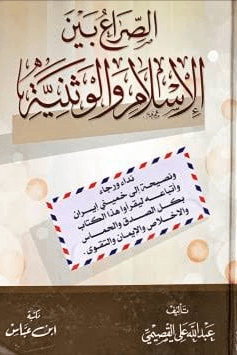 الصراع بين
الإسلام والوثنية
نداء ورجاء
ونصيحة إلى خميني إيران
وأتباعه ليقرأوا هذا الكتاب
بكل الصدق والحماس
والاخلاص والإيمان والتقوى
تأليف
عبد الله علي القصيمي
مكتبة
ابن عباس